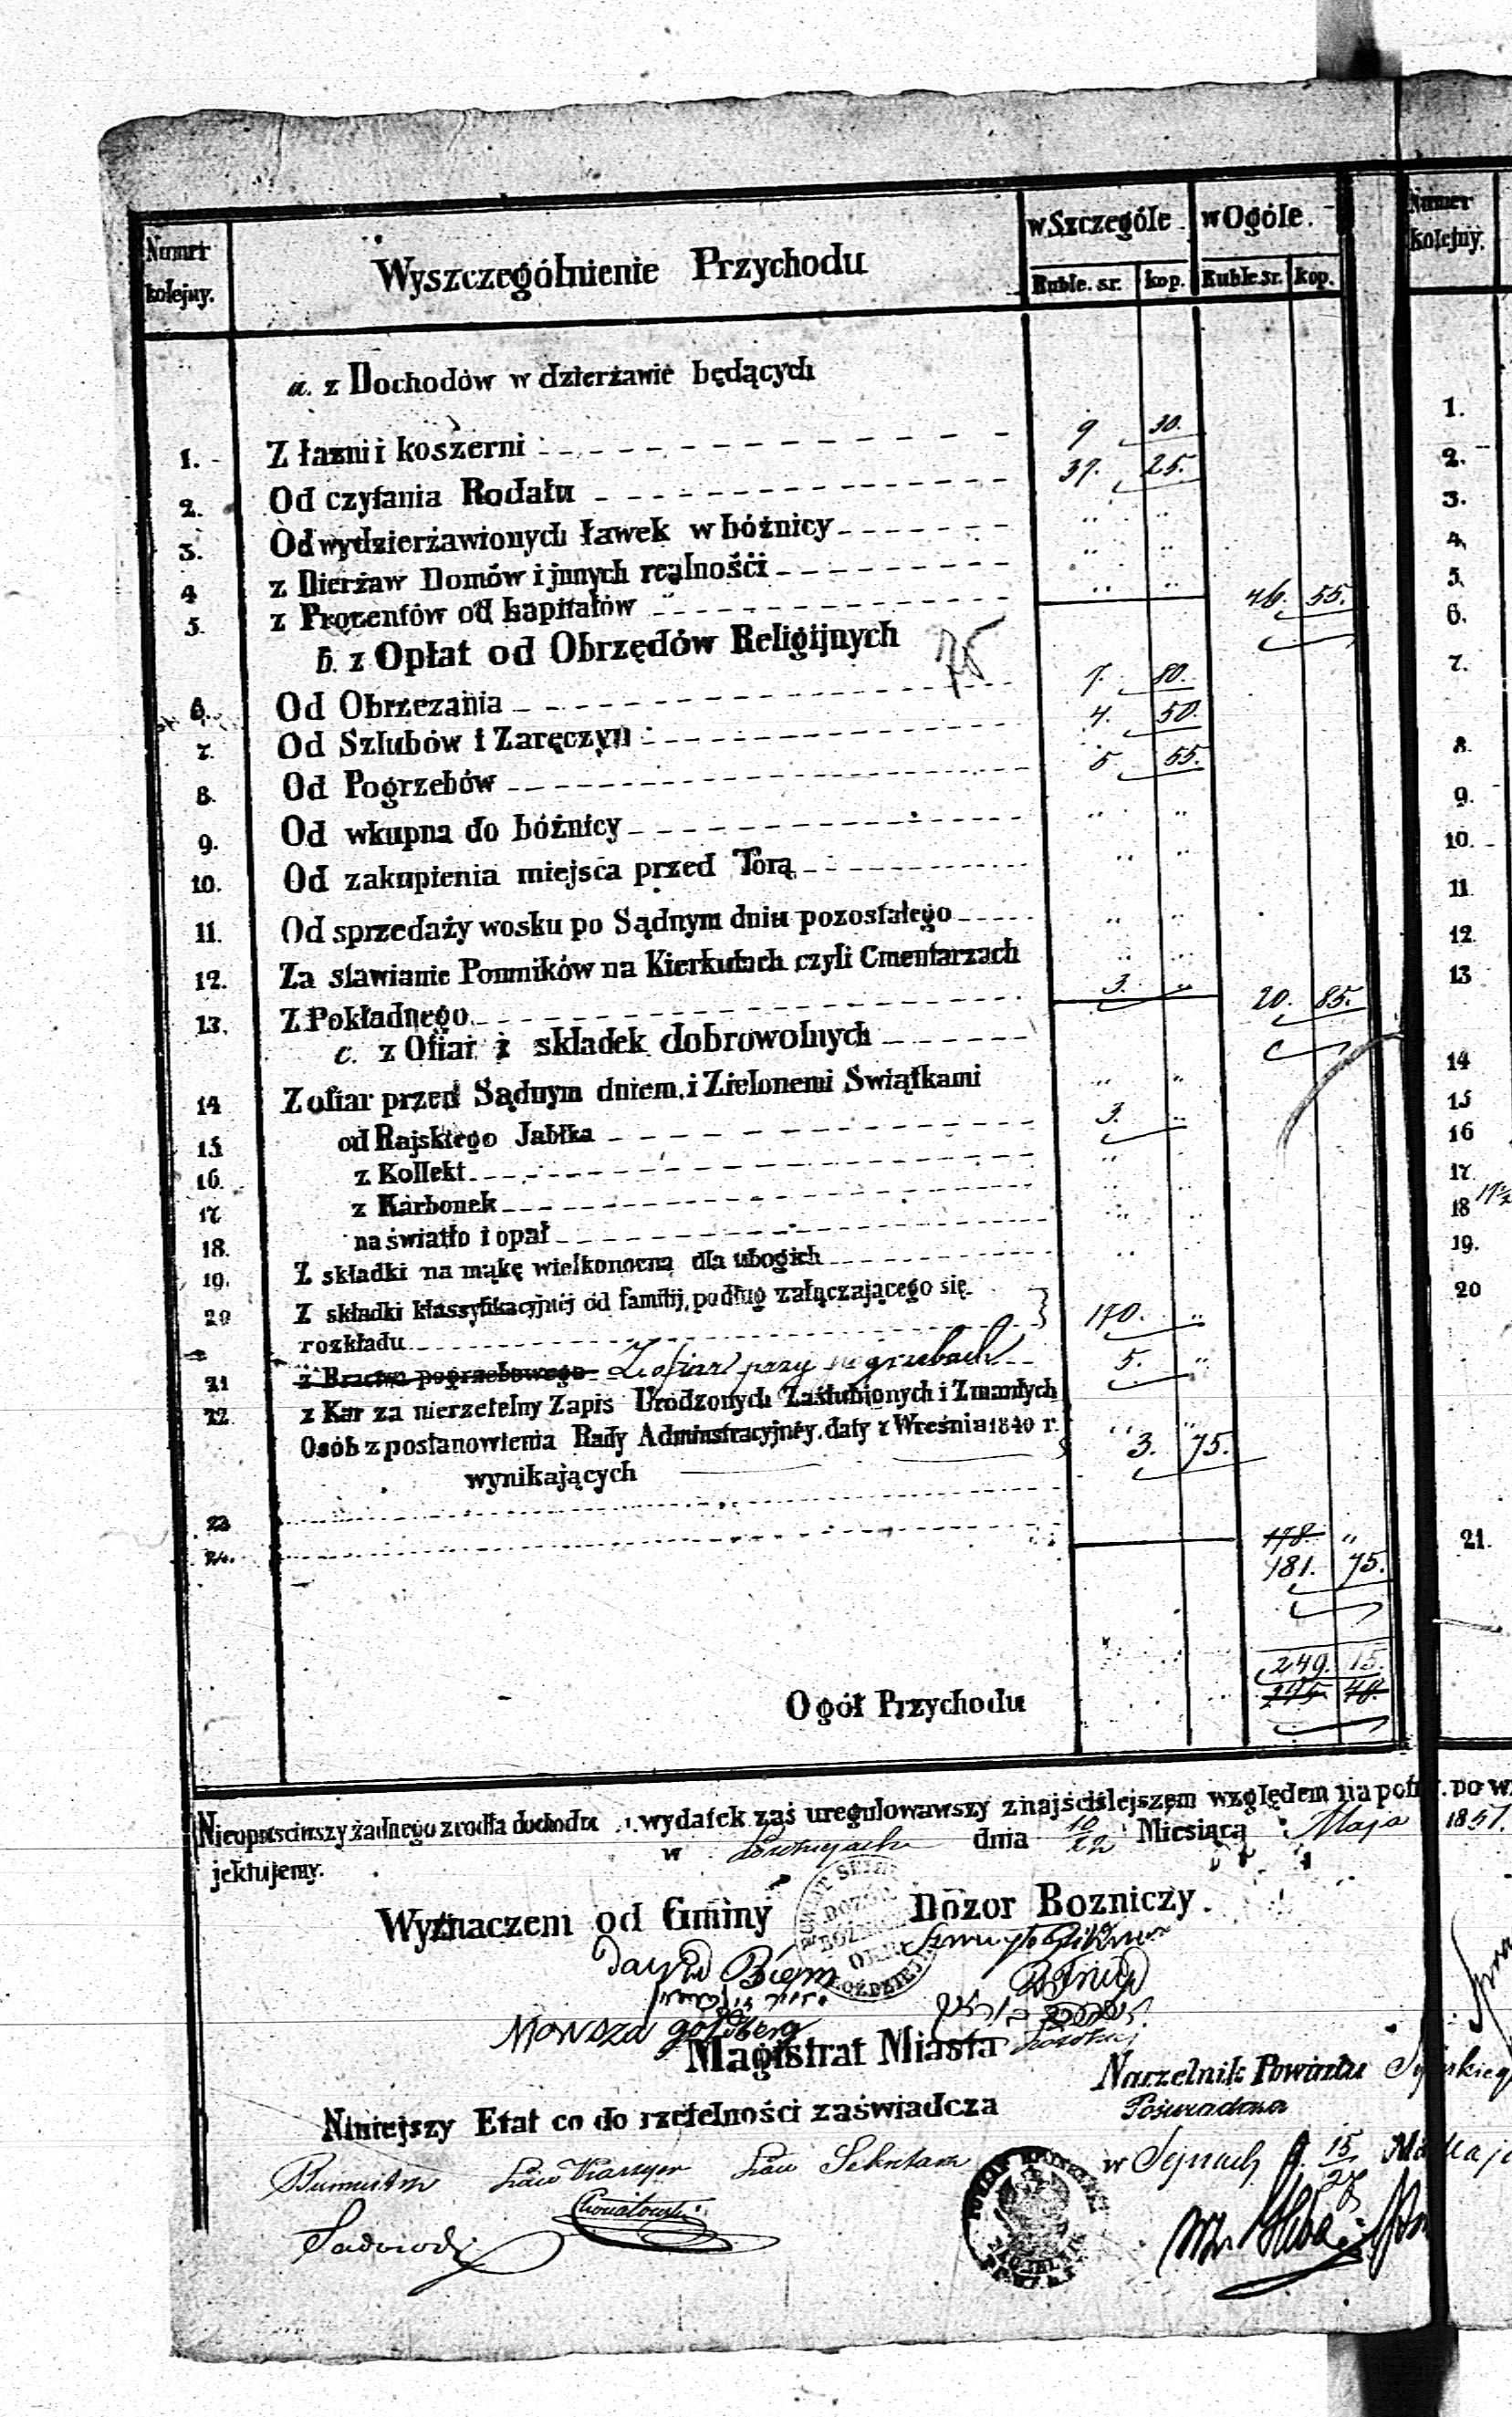 Numer kolejny.
Wyszczególnienie Przychodu
w Szczególe. w Ogóle.
Ruble. sr. kop. Ruble sr. kop.
Numer kolejny.
a. z Dochodów w dzierżawie będących
1. Z łaźni i koszerni 9 30.
2. Od czytania Rodału 37. 25.
3. Od wydzierżawionych ławek w bóżnicy " "
4 z Dierżaw Domów i jnnych realnośći " "
5. z Procentów od kapitałów " " 46. 55.
b. z Opłat od Obrzędów Religijnych 75
6. Od Obrzezania 7. 80.
7. Od Szlubów i Zaręczyn 4. 50.
8. Od Pogrzebów 5 55.
9. Od wkupna do bóżnicy " "
10. Od zakupienia miejsca przed Torą " "
11. Od sprzedaży wosku po Sądnym dniu pozostałego " "
12. Za stawianie Pomników na Kierkutach czyli Cmentarzach " "
13. Z Pokładnego 3. " 20. 85.
c. z Ofiar i składek dobrowolnych
14 Z ofiar przed Sądnym dniem i Zielonemi Swiątkami " "
15 od Rajskiego Jabłka 3. "
16. z Kollekt " "
17 z Karbonek " "
18. na światło i opał " "
19. Z składki na mąkę wielkonocną dla ubogich " "
20 Z składki klassyfikacyjnéj od familij, podług załączającego się
rozkładu 170. "
21 z Bractwa pogrzebowego Z ofiar przy pogrzebach 5. "
22 z Kar za nierzetelny Zapis Urodzonych Zaślubionych i Zmarłych
Osób z postanowienia Rady Administracyjnéy. daty 1 Wreśnia 1840 r. " "
wynikających 3. 75.
23
24.
178. "
181. 75.
249. 15.
Ogół Przychodu 245 40.
Nieopusciwszy żadnego zrodła dochodu i wydatek zaś uregulowawszy z najściślejszem względem na
jektujemy. w dnia 10/22 Miesiąca Maja 1851.
Wyznaczem od Gminy Dozor Bozniczy.
Mowsza goldberg
Magistrat Miasta
Niniejszy Etat co do rzetelności zaświadcza
Naczelnik Powiatu
Poświadcza
w Sejnach d. 15/27 Maja
1.
2.
3.
4.
5.
6.
7.
8.
9.
10.
11
12
13
14
15
16
17
18
19.
20
21.